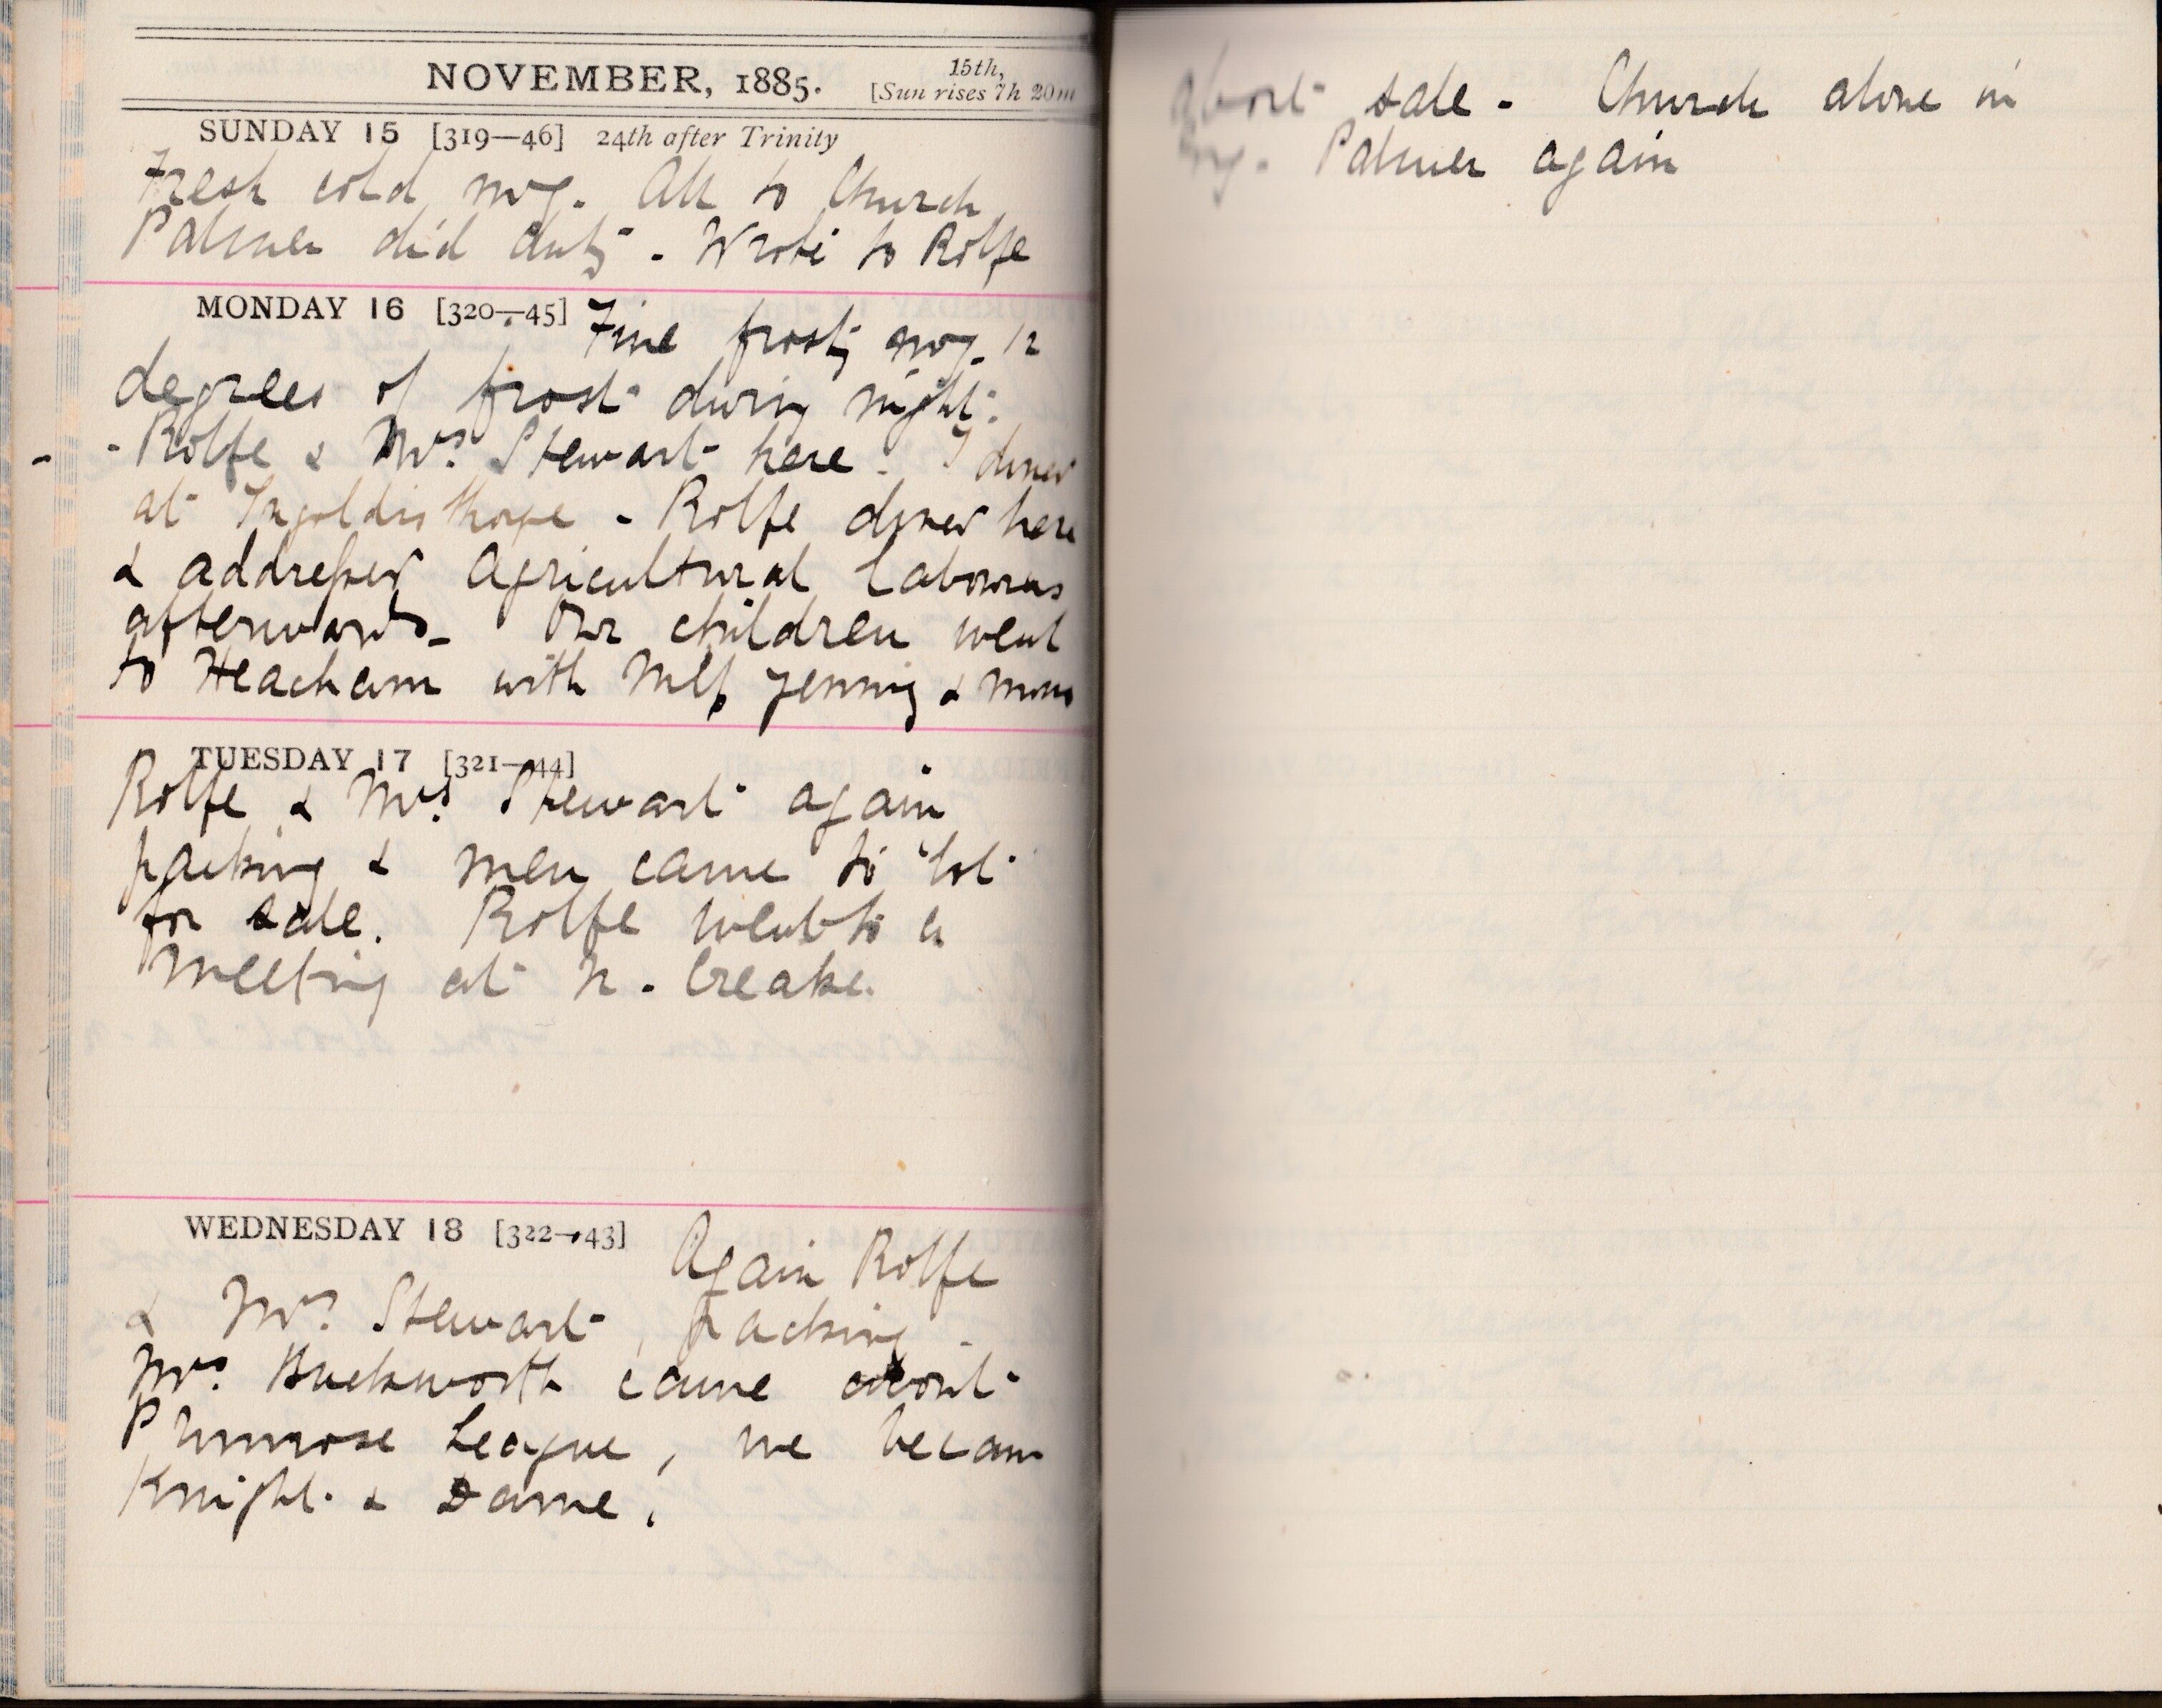 NOVEMBER, 1885.
15th,
[Sun rises 7h 20m
SUNDAY 15 [319—46] 24th after Trinity
Fresh cold mg. All to Church
Palmer did duty - Wrote to Rolfe
MONDAY 16 [320—45] Fine frosty mg. 12
degrees of frost during night.
- Rolfe & Mrs. Stewart here. I dined
at Ingoldisthorpe - Rolfe dined here
& addressed Agricultural labourers
afterwards - Our children went
to Heacham with Mlle &
TUESDAY 17 [321—44]
Rolfe & Mrs. Stewart again
packing & men came to lot
for sale. Rolfe went to a
meeting at N. Creake.
WEDNESDAY 18 [322—43] Again Rolfe
& Mrs. Stewart, packing -
Mrs. Buckworth came about
Primrose League, we became
Knight & Dame.
about sale - Church alone in
Palmer again